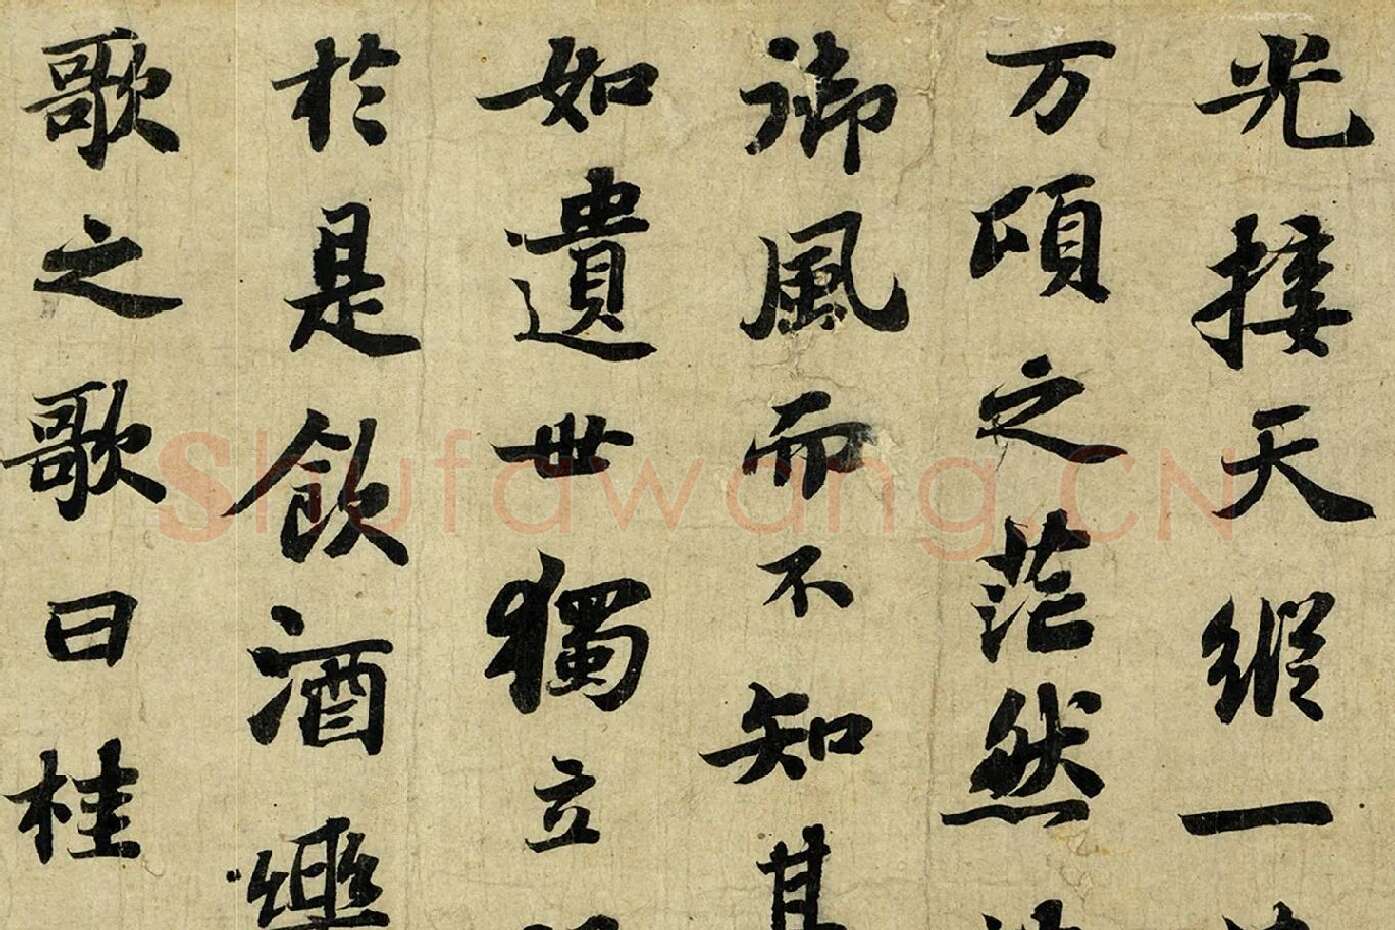 光接天縱一
万頃之茫然
御風而不知其
如遺世獨立
於是飲酒樂
歌之歌曰桂
Shufawang.CN